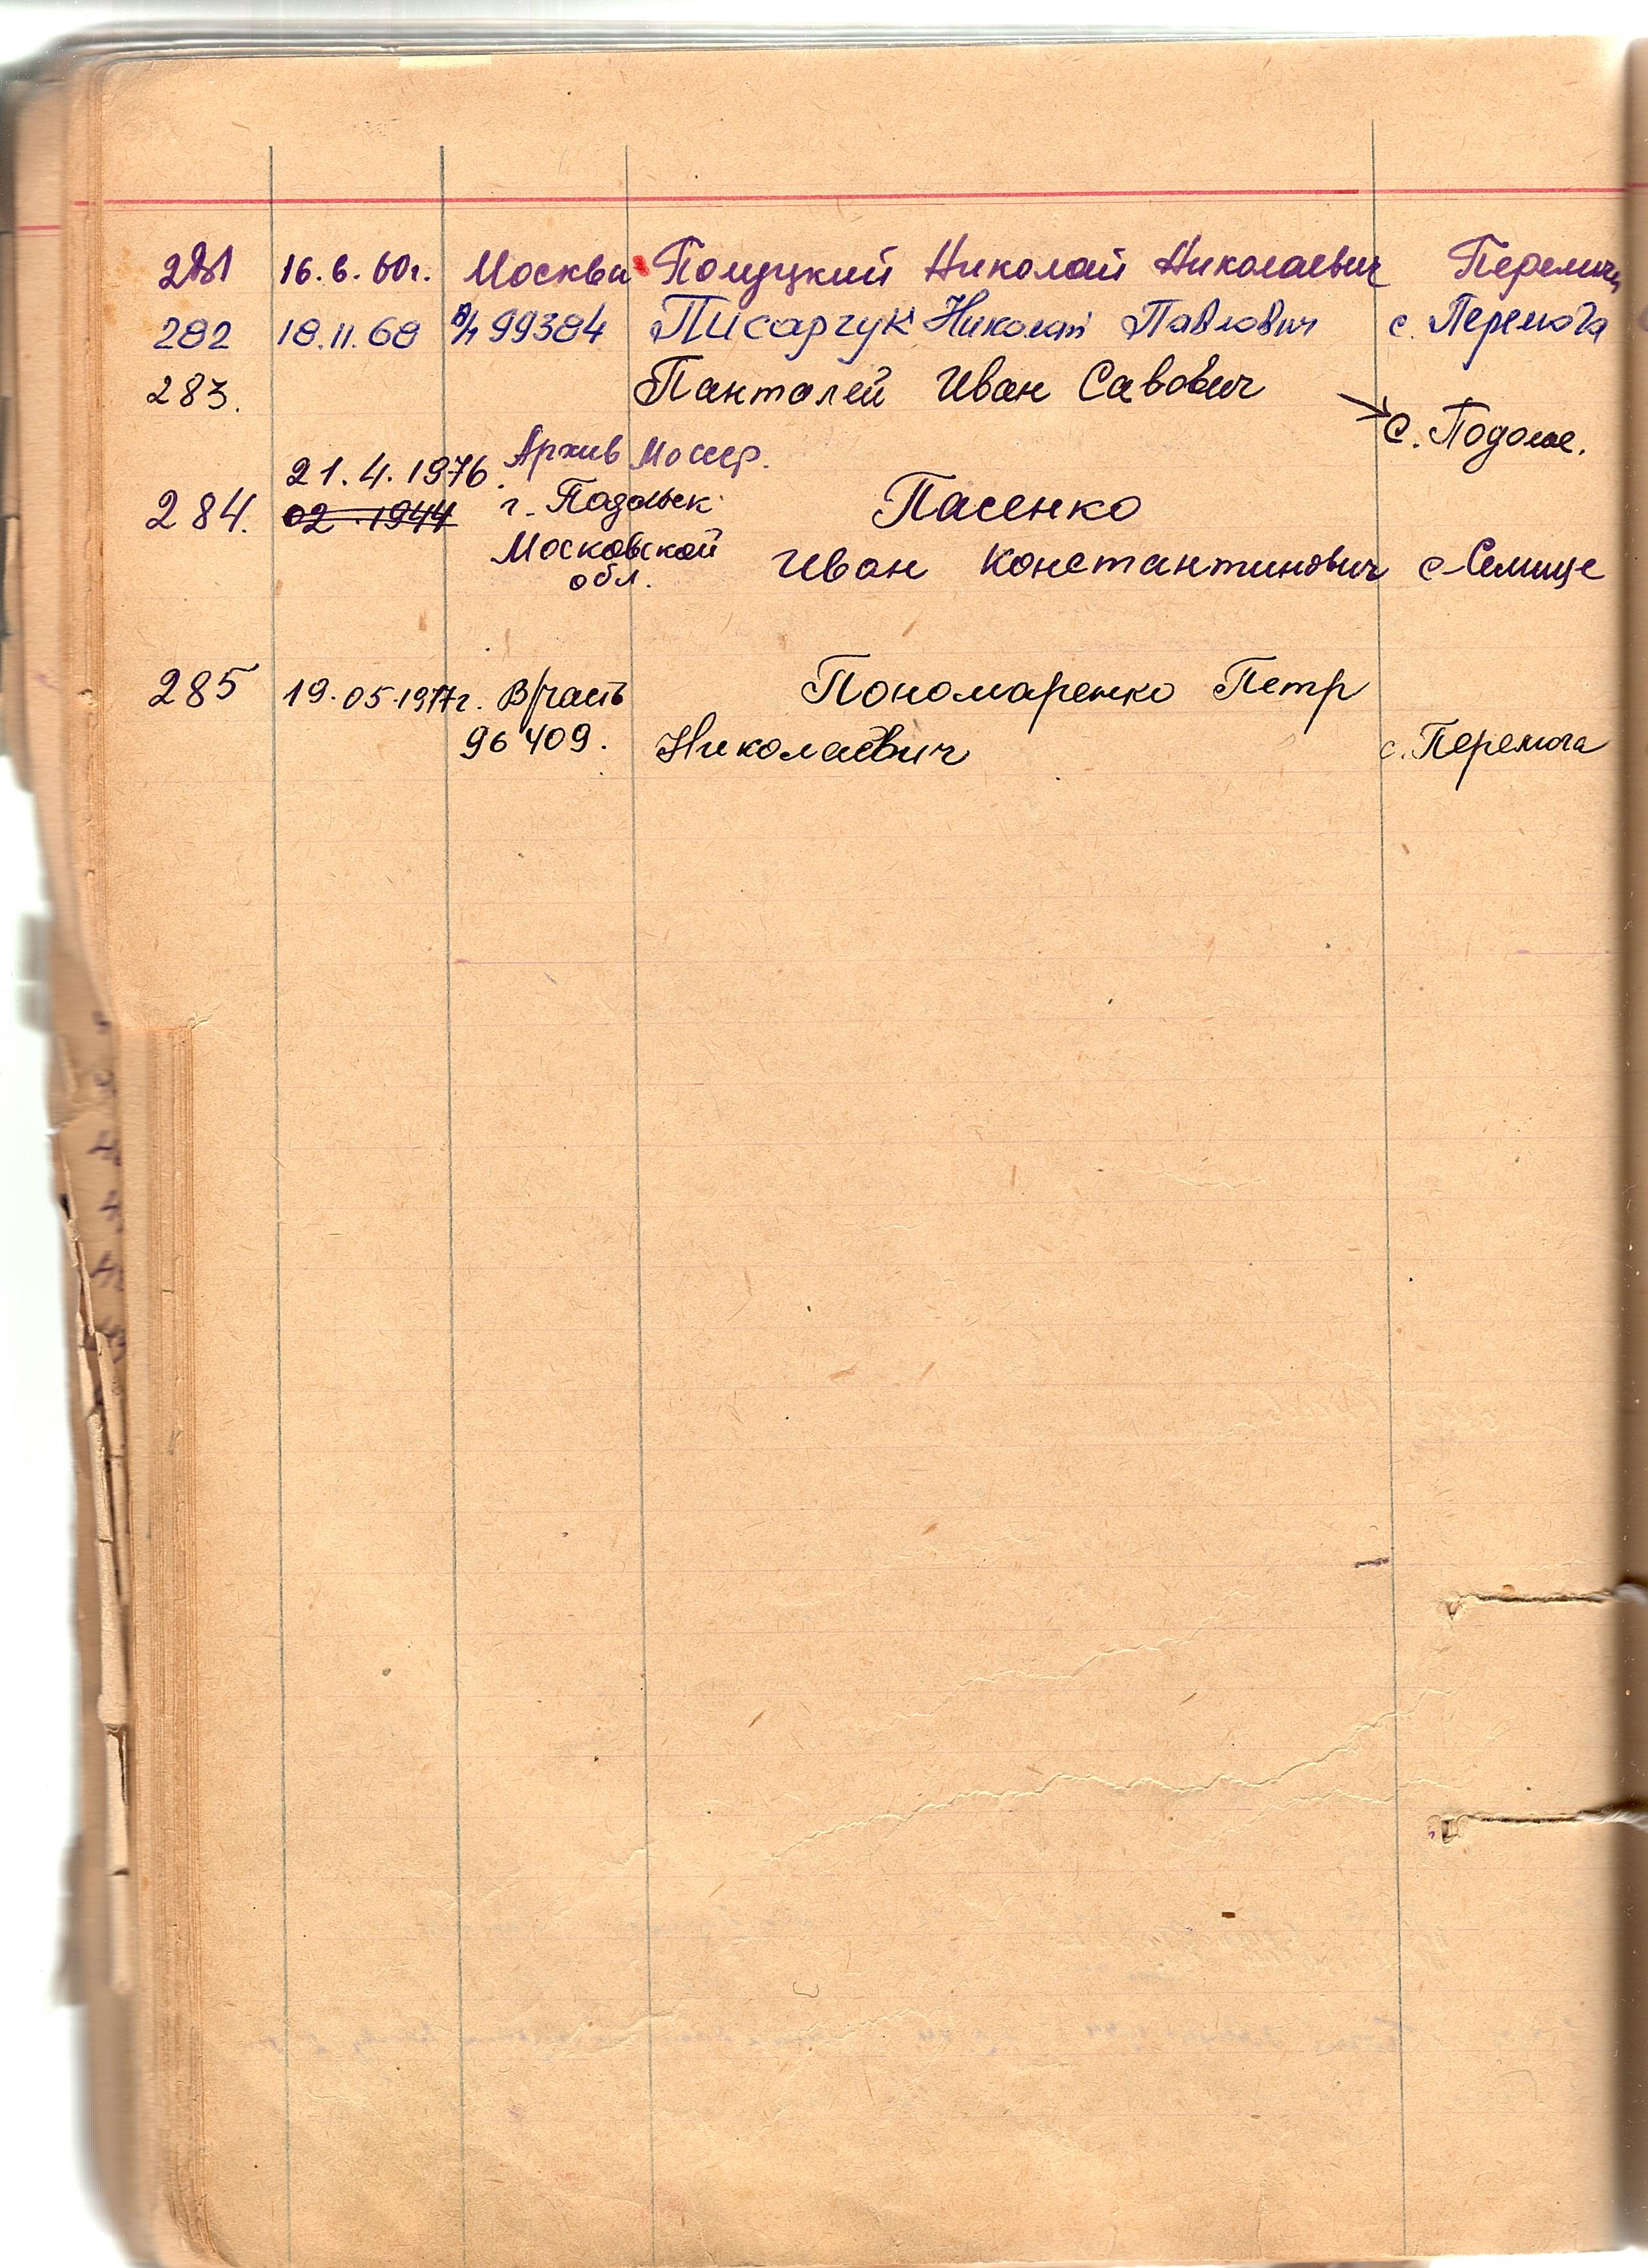 281 16.6.60г. Москва Полуцкий Николай Николаевич Перемога
282 18.11.68 в/ч 99384 Писарчук Николай Павлович с. Перемога
283. Панталей Иван Савович
с. Подолье.
21.4.1976. Архив
284. 02.1944 г. Подольск Пасенко
Московской Иван Константинович с. Селище
обл.
285 19.05.1977г. В/часть Пономаренко Петр
96409. Николаевич с. Перемога